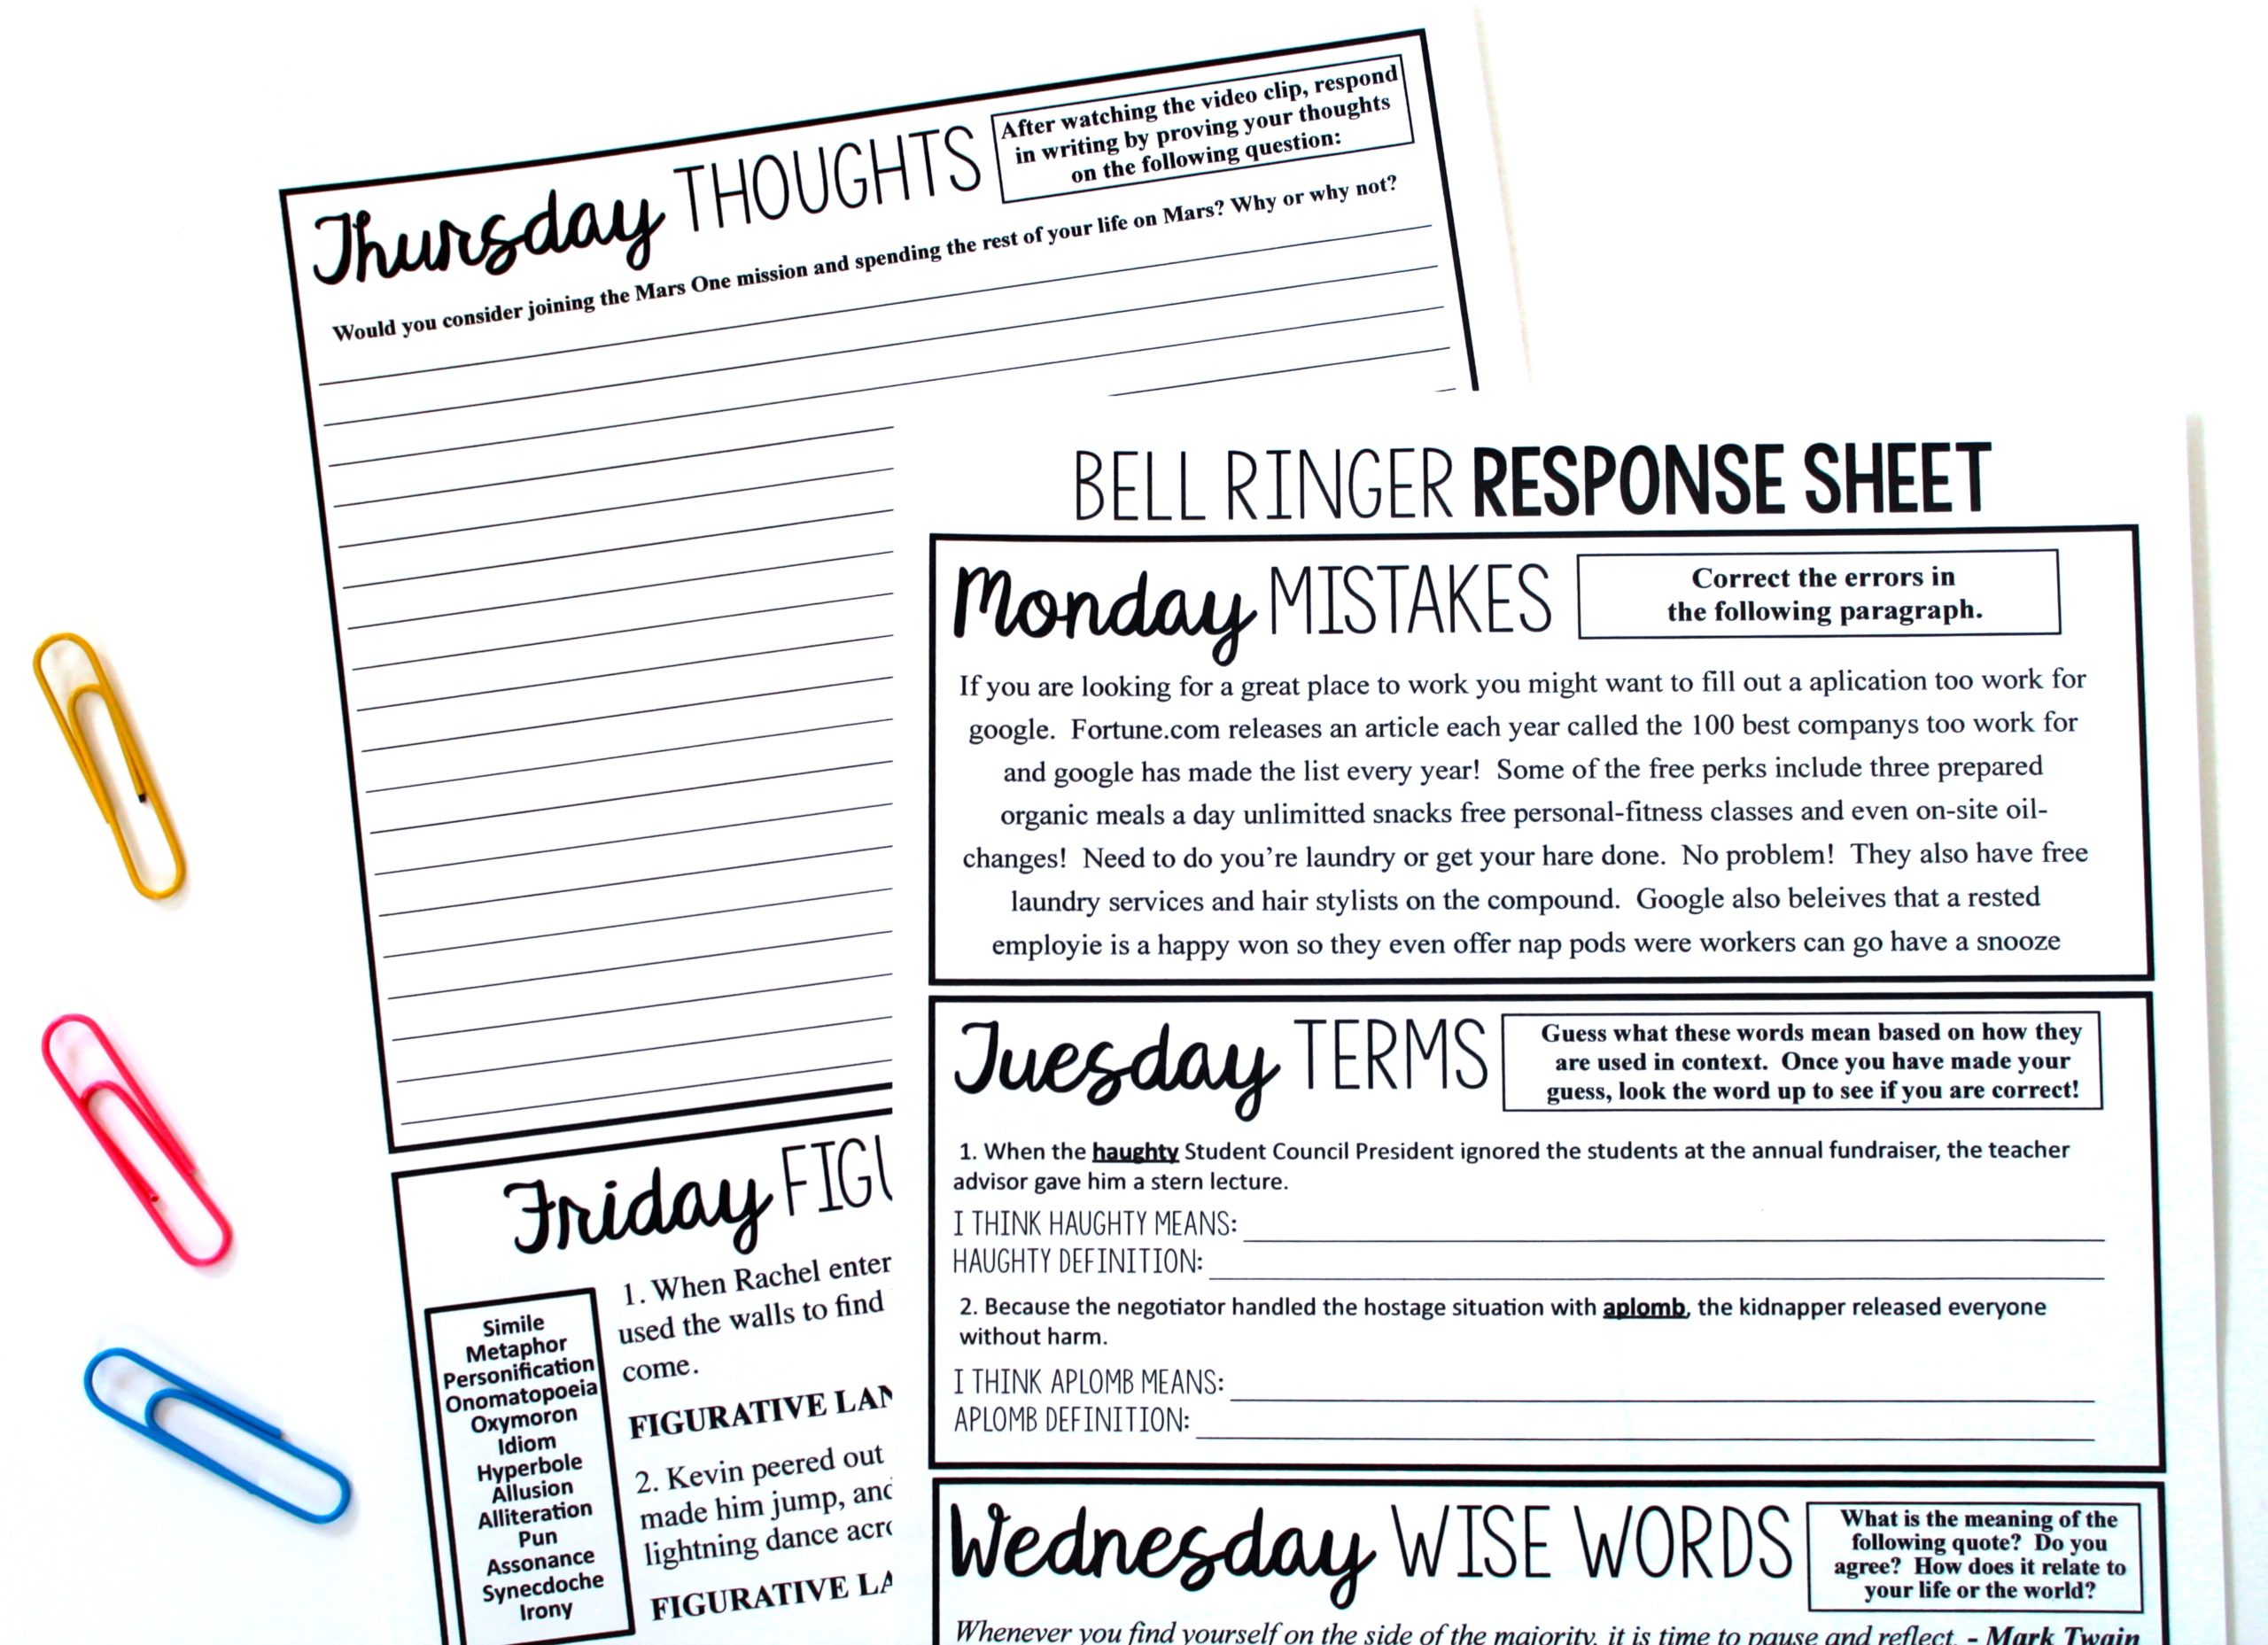 Thursday THOUGHTS
After watching the video clip, respond
in writing by proving your thoughts
on the following question:
Would you consider joining the Mars One mission and spending the rest of your life on Mars? Why or why not?
Friday
Simile
Metaphor
Personification
Onomatopoeia
Oxymoron
Idiom
Hyperbole
Allusion
Alliteration
Pun
Assonance
Synecdoche
Irony
1. When Rachel enter
used the walls to find
come.
FIGURATIVE LAN
2. Kevin peered out
made him jump, and
lightning dance acro
FIGURATIVE LA
BELL RINGER RESPONSE SHEET
Monday MISTAKES
Correct the errors in
the following paragraph.
If you are looking for a great place to work you might want to fill out a aplication too work for
google. Fortune.com releases an article each year called the 100 best companys too work for
and google has made the list every year! Some of the free perks include three prepared
organic meals a day unlimitted snacks free personal-fitness classes and even on-site oil-
changes! Need to do you're laundry or get your hare done. No problem! They also have free
laundry services and hair stylists on the compound. Google also beleives that a rested
employie is a happy won so they even offer nap pods were workers can go have a snooze
Tuesday TERMS
Guess what these words mean based on how they
are used in context. Once you have made your
guess, look the word up to see if you are correct!
1. When the haughty Student Council President ignored the students at the annual fundraiser, the teacher
advisor gave him a stern lecture.
I THINK HAUGHTY MEANS:
HAUGHTY DEFINITION:
2. Because the negotiator handled the hostage situation with aplomb, the kidnapper released everyone
without harm.
I THINK APLOMB MEANS:
APLOMB DEFINITION:
Wednesday WISE WORDS
What is the meaning of the
following quote? Do you
agree? How does it relate to
your life or the world?
Whenever you find yourself on the side of the majority, it is time to pause and reflect. - Mark Twain